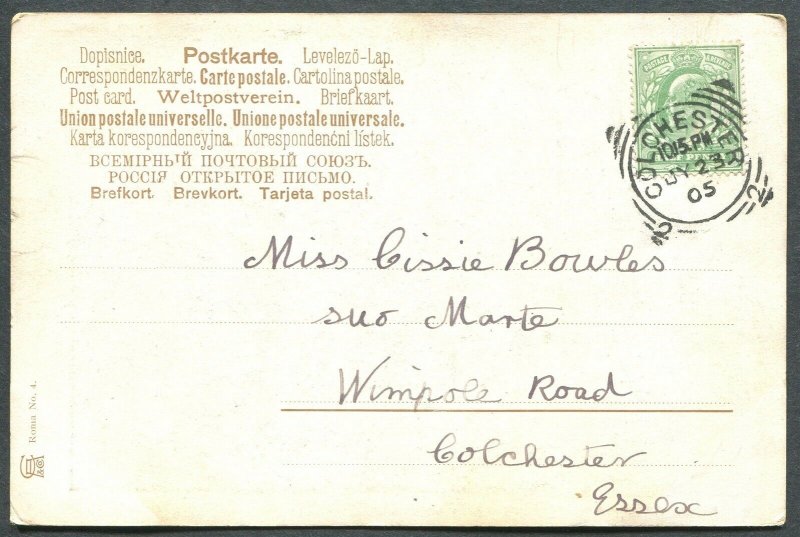 Dopisnice. Postkarte. Levelező-Lap.
Correspondenzkarte. Carte postale. Cartolina postale.
Post card. Weltpostverein. Briefkaart.
Union postale universelle. Unione postale universale.
Karta korespondencyjna. Korespondenční lístek.
ВСЕМІРНЫЙ ПОЧТОВЫЙ СОЮЗЪ.
РОССІЯ ОТКРЫТОЕ ПИСЬМО.
Brefkort. Brevkort. Tarjeta postal.
COLCHESTER
10.15.PM
JY 23
05
2 2
Miss Cissie Bowles
suo Marte
Wimpole Road
Colchester
Essex
Roma No. 4.